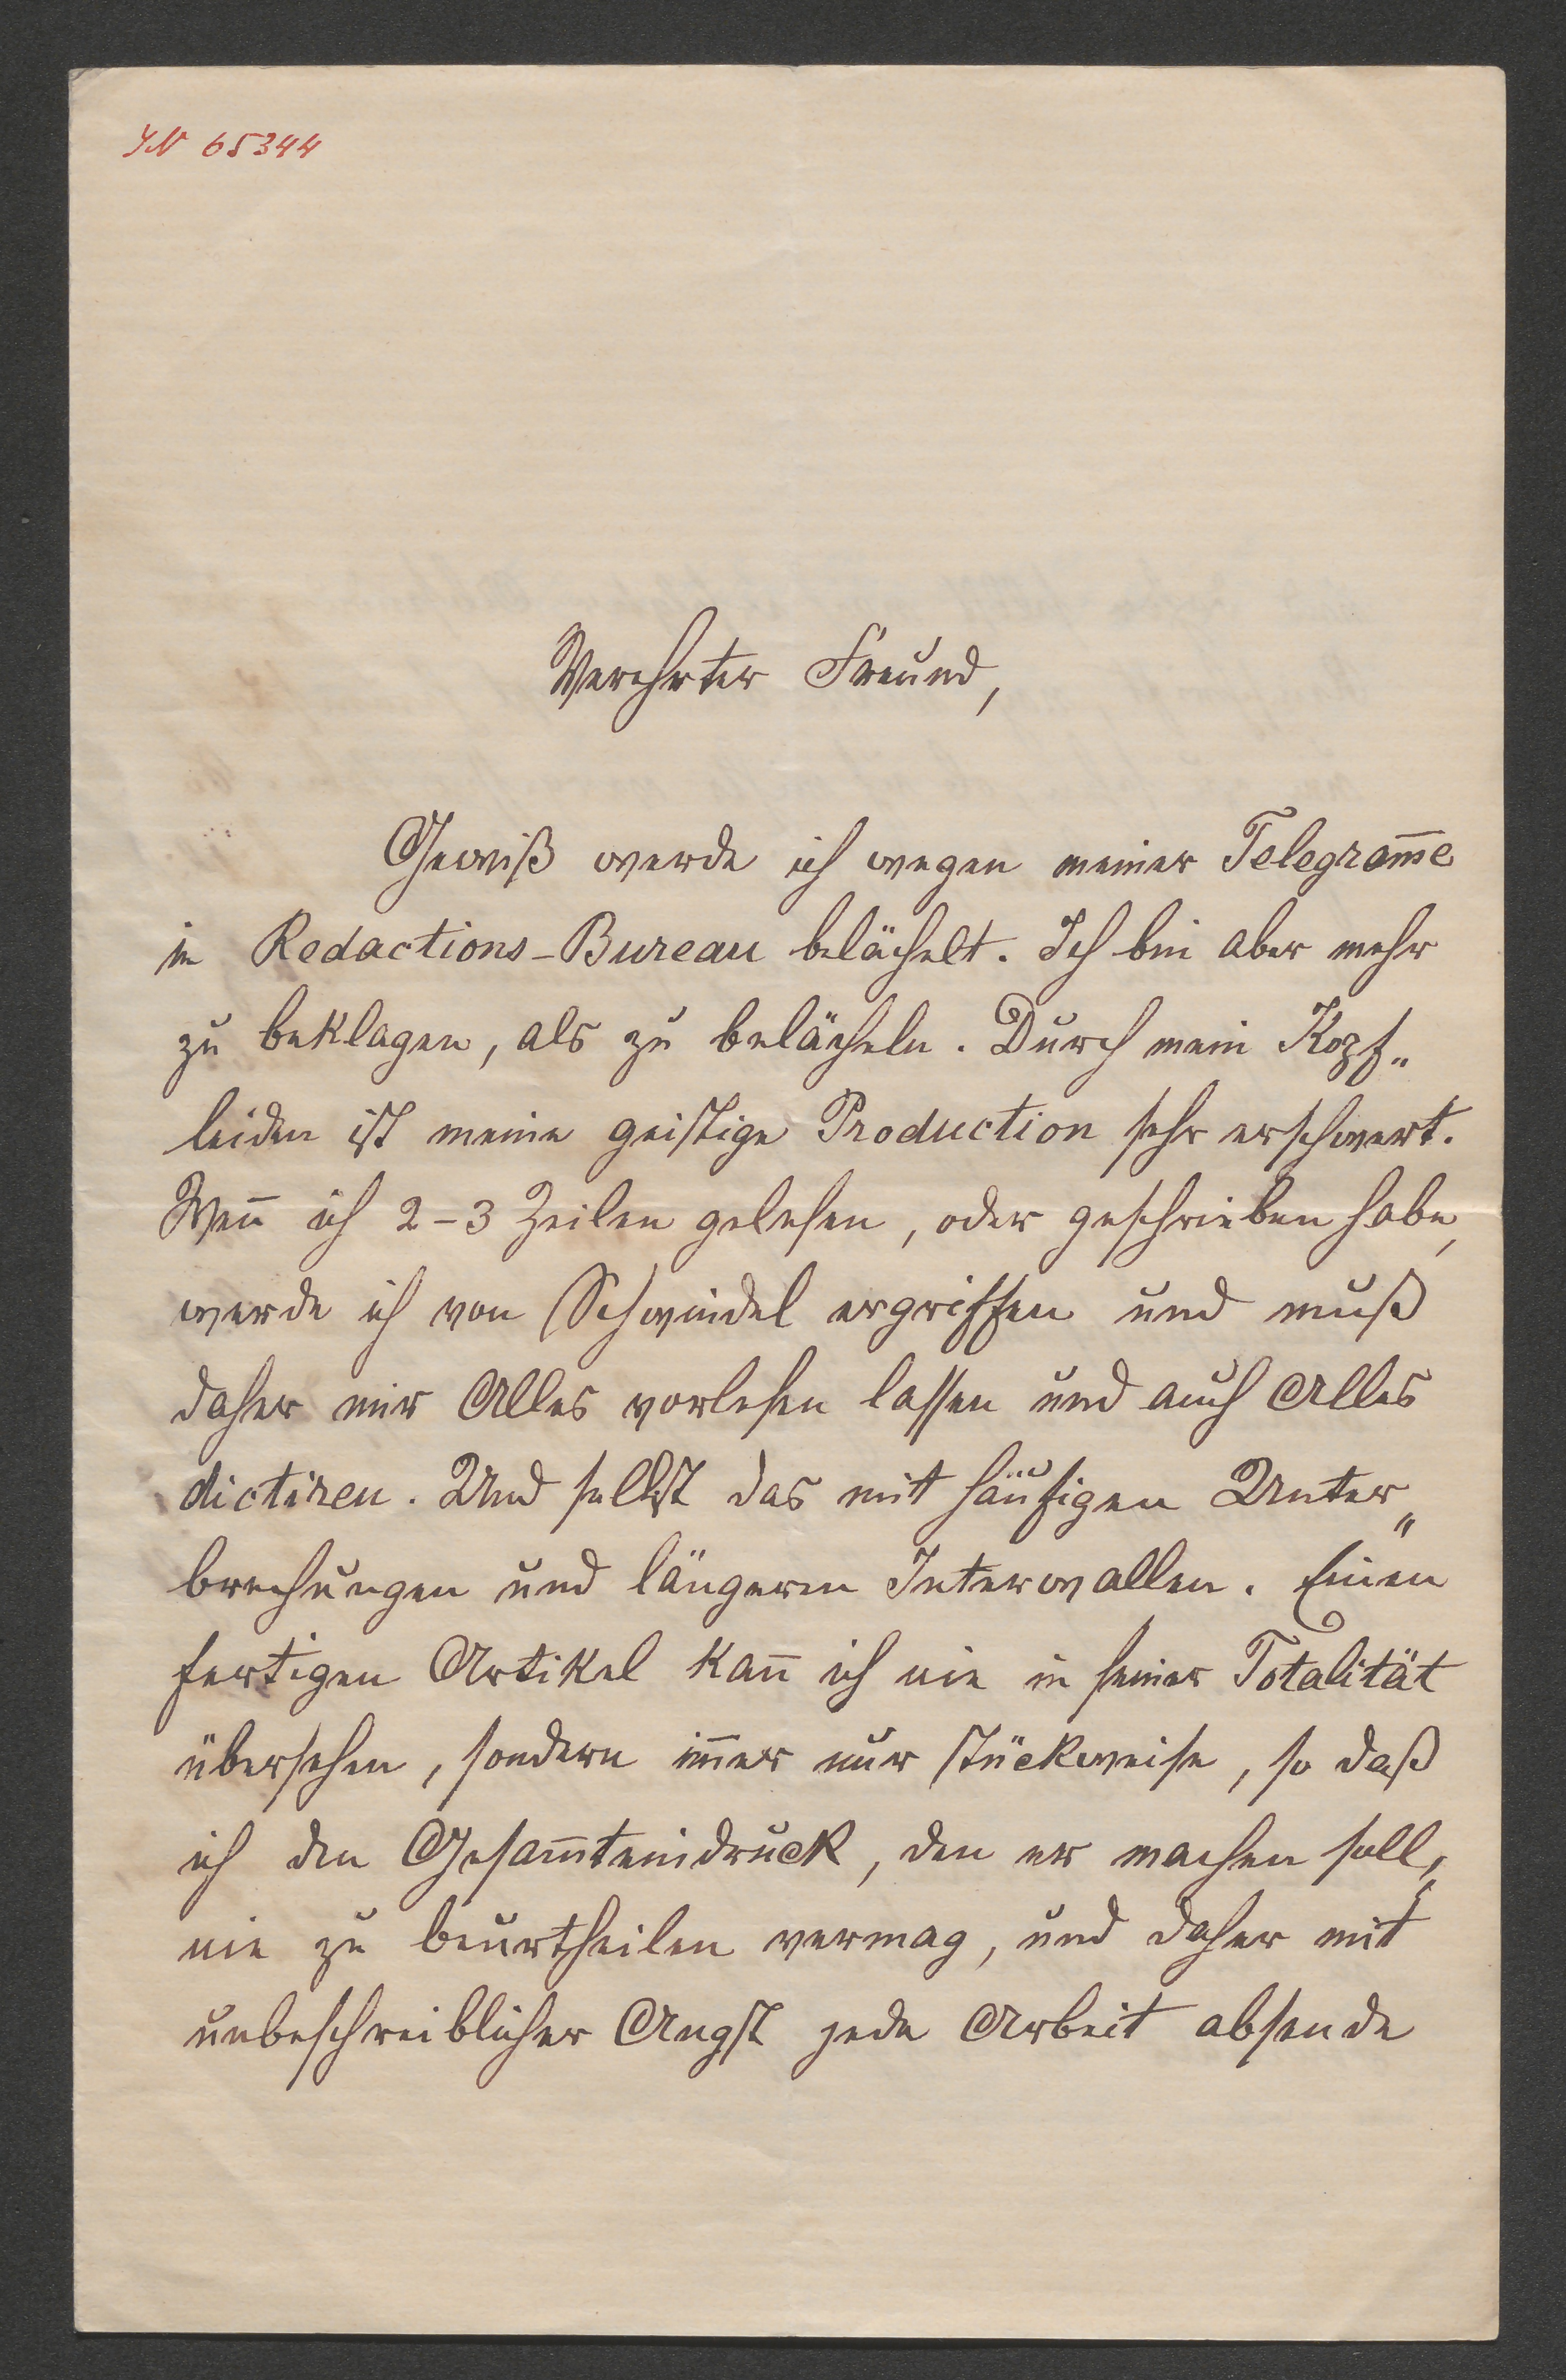 IN 65344
Verehrter Freund,
Gewiß werde ich wegen meiner Telegram̅e
in Redactions-Bureau belächelt. Ich bin aber mehr
zu beklagen, als zu belächeln. Durch mein Kopf„
leiden ist meine geistige Production sehr erschwert.
Wen̅ ich 2-3 Zeilen gelesen, oder geschrieben habe,
werde ich von Schwindel ergriffen und muß
daher mir Alles vorlesen lassen und auch Alles
dictiren. Und selbst das mit häufigen Unter„
brechungen und längeren Interwallen. Einen
fertigen Artikel kan̅ ich nie in seiner Totalität
übersehen, sondern im̅er nur stückweise, so daß
ich den Gesam̅teindruck, den er machen soll,
nie zu beurtheilen vermag, und daher mit
unbeschreiblicher Angst jede Arbeit absende